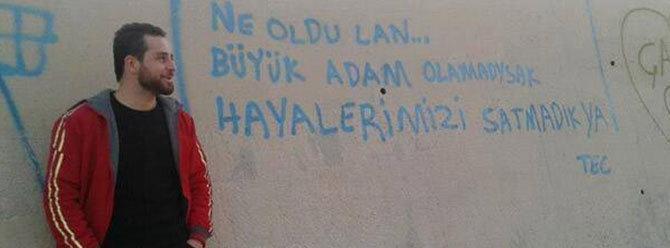 NE OLDU LAN...
BÜYÜK ADAM OLAMADYSAK
HAYALERİMİZİ SATMADIK YA
TEC